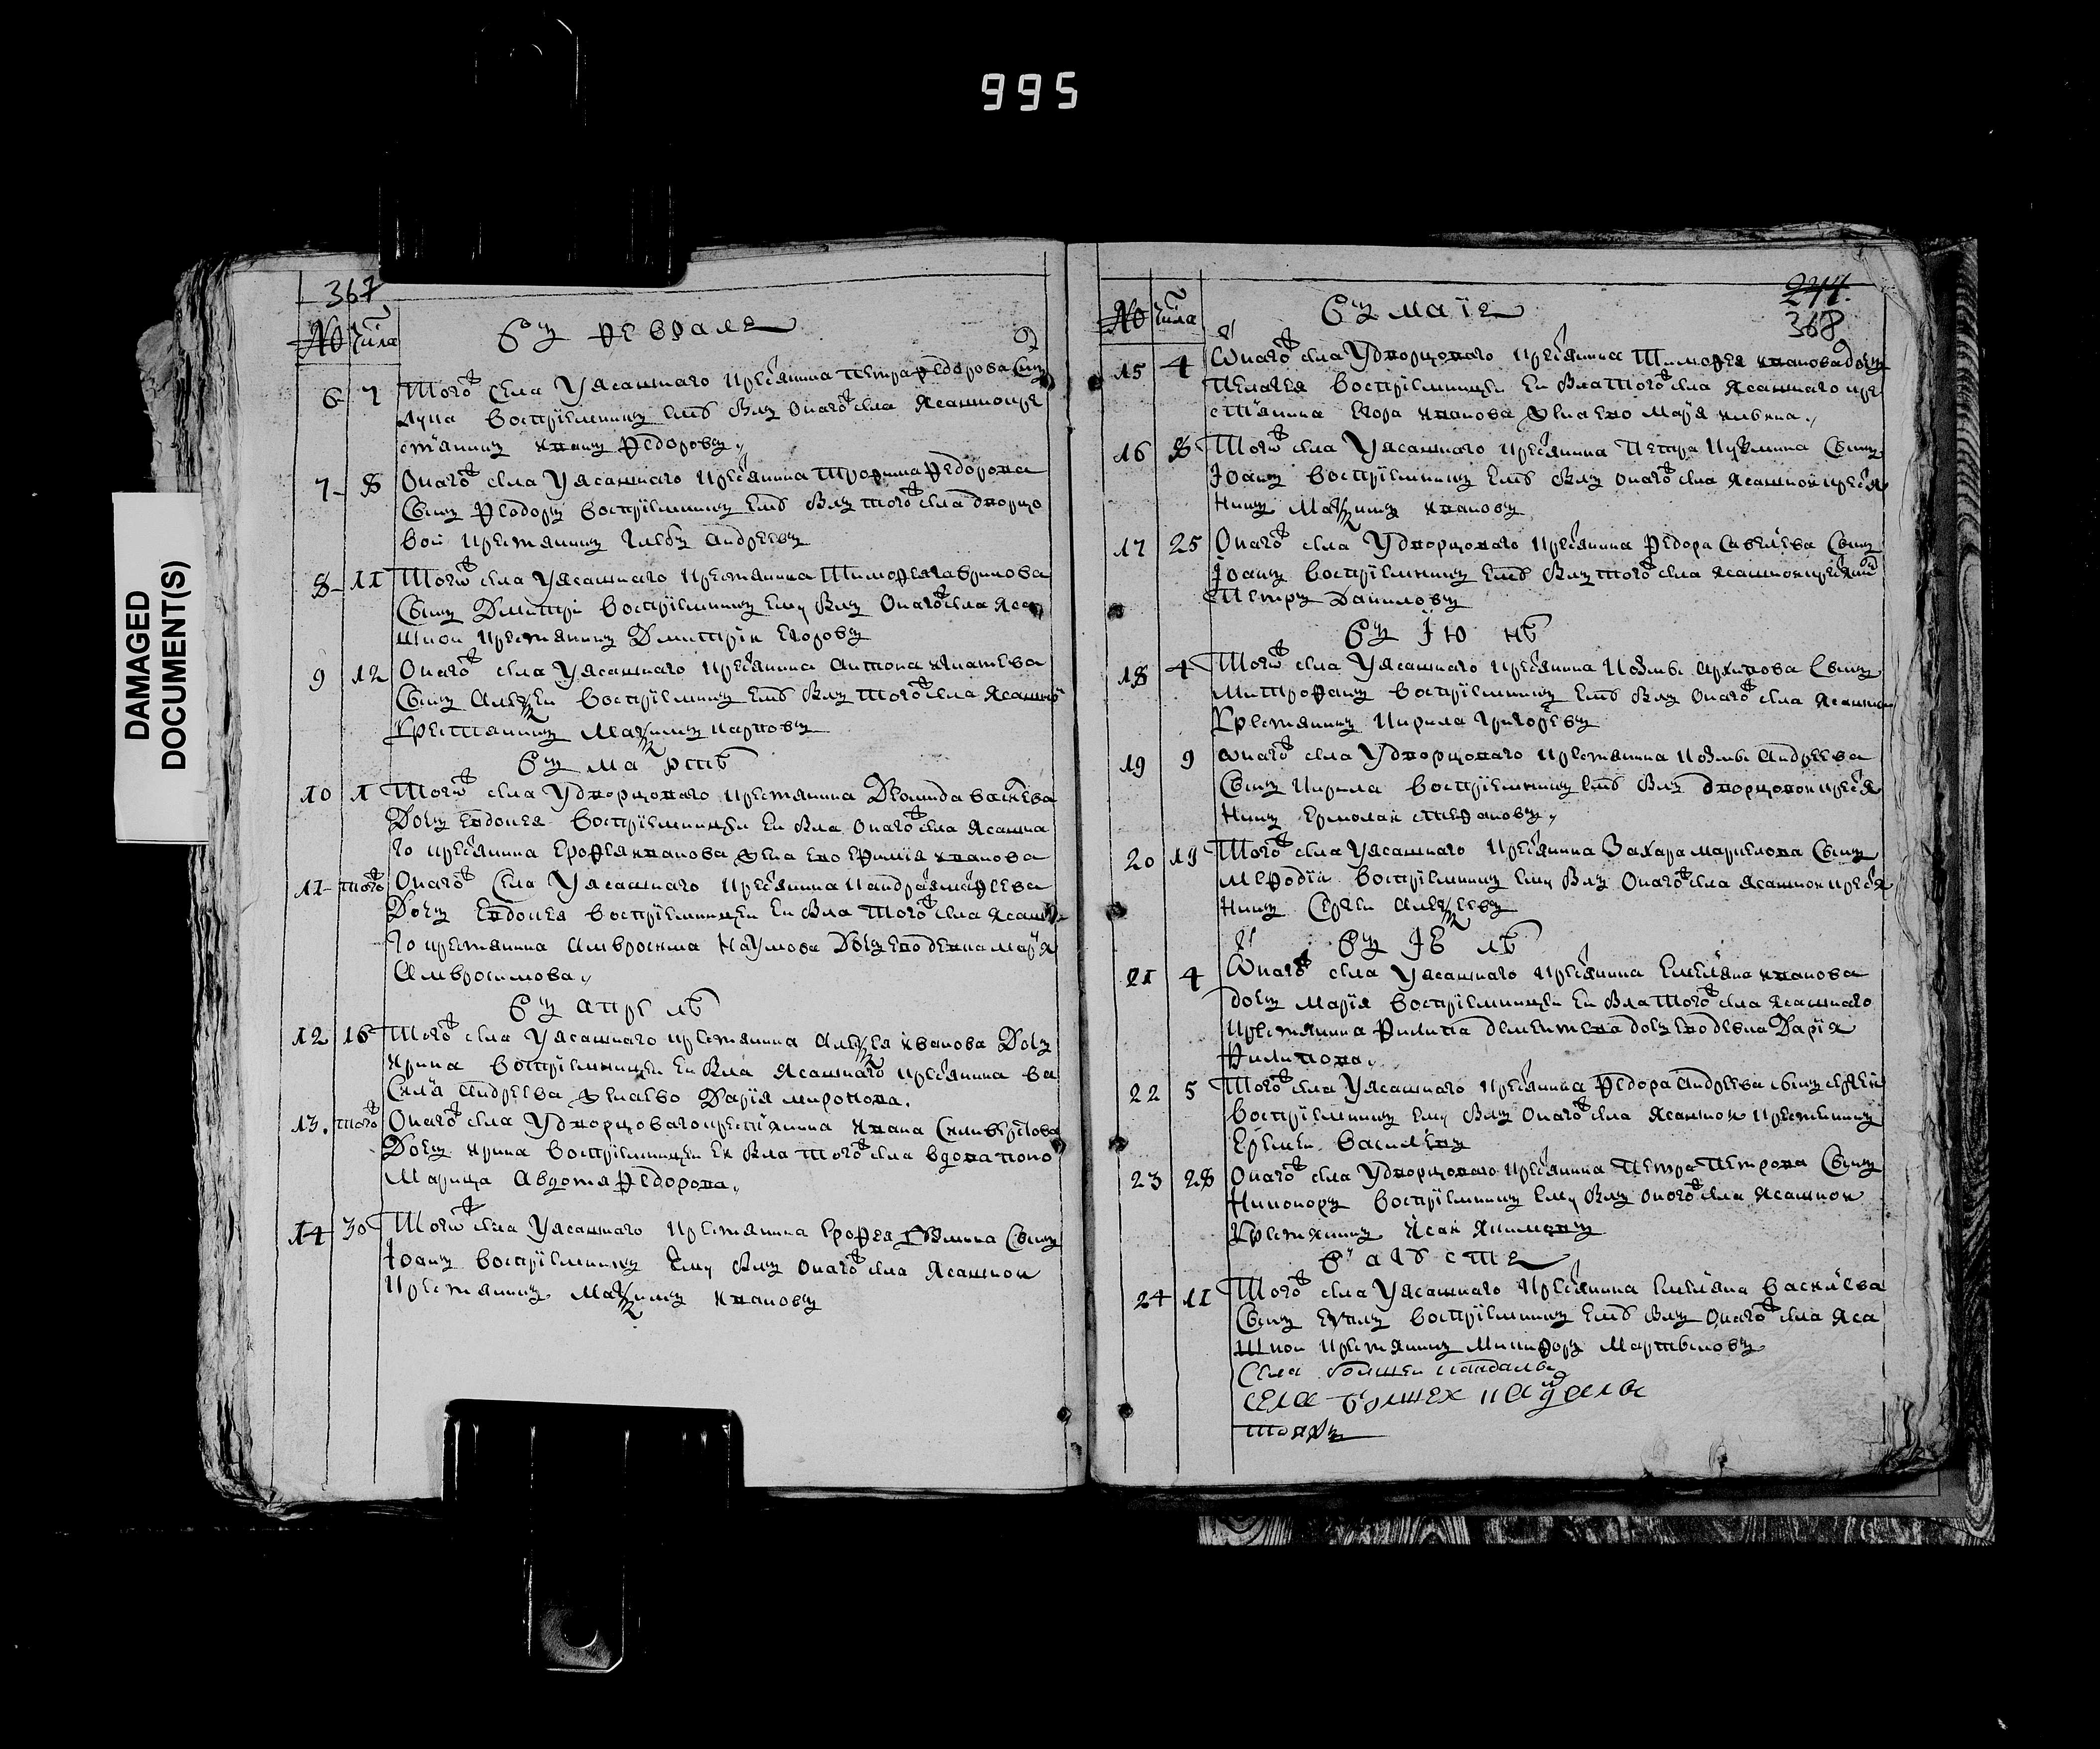 995
DAMAGED
DOCUMENT(S)
367
№ числа
въ февралѣ
6 7 Того жъ села Уясашнаго крестьянина Петра Федорова сынъ
Лука восприемникъ ему былъ онаго жъ села ясашной кре
стьянинъ Иванъ Федоровъ
7 8 Онаго жъ села Уясашнаго крестьянина Трофима Федорова
сынъ Феодоръ восприемникъ ему былъ того жъ села дворцо
вой крестьянинъ Глебъ Андреевъ
8 11 Того жъ села Уясашнаго крестьянина Тимофея Гаврилова
сынъ Дмитрій восприемникъ ему былъ онаго жъ села яса
шной крестьянинъ Дмитрій Егоровъ
9 12 Онаго жъ села Уясашнаго крестьянина Антона Игнатьева
сынъ Алеѯей восприемникъ ему былъ того жъ села ясашной
крестьянинъ Маѯимъ Карповъ
въ мартѣ
10 1 Того жъ села Удворцоваго крестьянина Васильева
дочь Евдокея восприемницей ей была онаго жъ села ясашна
го крестьянина Ерофея Иванова жена ево Ефимия Иванова
11 того жъ Онаго жъ села Уясашнаго крестьянина Кандратья
дочь Евдокея восприемницей ей была того жъ села ясашна
го крестьянина Амвросима Наумова дочь ево девка Марья
Амвросимова
въ апрелѣ
12 16 Того жъ села Уясашнаго крестьянина Алеѯея Иванова дочь
Ирина восприемницей ей была ясашнаго крестьянина Ва
силя Андреева жена ево Дарія Миронова.
13. того жъ Онаго жъ села Удворцоваго крестьянина Ивана Селиверстова
дочь Ирина восприемницей ей была того жъ села вдова поно
марица Авдотя Федорова
14 30 Того жъ села Уясашнаго крестьянина Ерофея сынъ
Іоанъ восприемникъ ему былъ онаго жъ села ясашной
крестьянинъ Маѯимъ Ивановъ
244.
368
№ числа
въ маіе
15 4 Онаго жъ села Удворцоваго крестьянина Тимофея Иванова дочь
Пелагея восприемницей ей была того жъ села ясашнаго кре
стьянина Егора Иванова жена ево Марія
16 8 Того жъ села Уясашнаго крестьянина Петра Кузмина сынъ
Іоанъ восприемникъ ему былъ онаго жъ села ясашной крестья
нинъ Маѯимъ Ивановъ
17 25 Онаго жъ села Удворцоваго крестьянина Федора Савельева сынъ
Іоанъ восприемникъ ему былъ того жъ села ясашной крестьянинъ
Петръ Даниловъ
въ іюнѣ
18 4 Того жъ села Уясашнаго крестьянина Козмы Архипова сынъ
Митрофанъ восприемникъ ему былъ онаго жъ села ясашной
крестьянинъ Кирила Григорьевъ
19 9 Онаго жъ села Удворцоваго крестьянина Козмы Андреева
сынъ Кирила восприемникъ ему былъ дворцовой крестья
нинъ Ермолай Степановъ
20 19 Того жъ села Уясашнаго крестьянина Захара Маркелова сынъ
Мефодій восприемникъ ему былъ онаго жъ села ясашной крестья
нинъ Сергей Алеѯеевъ
въ іюлѣ
21 4 Онаго жъ села Уясашнаго крестьянина Емельяна Иванова
дочь Марія восприемницей ей была того жъ села ясашнаго
крестьянина Филипа Дементева дочь ево девка Дарія
Филипова
22 5 Того жъ села Уясашнаго крестьянина Федора Андреева сынъ Сергей
восприемникъ ему былъ онаго жъ села ясашной крестьянинъ
Еремей Васильевъ
23 28 Онаго жъ села Удворцоваго крестьянина Петра Петрова сынъ
Никоноръ восприемникъ ему былъ онаго жъ села ясашной
крестьянинъ Исай Якимовъ
въ августе
24 11 Того жъ села Уясашнаго крестьянина Емельяна Васильева
сынъ Еуплъ восприемникъ ему былъ онаго жъ села яса
шной крестьянинъ Никифоръ Мартыновъ
села болшей кандалы
села болшех кандалы